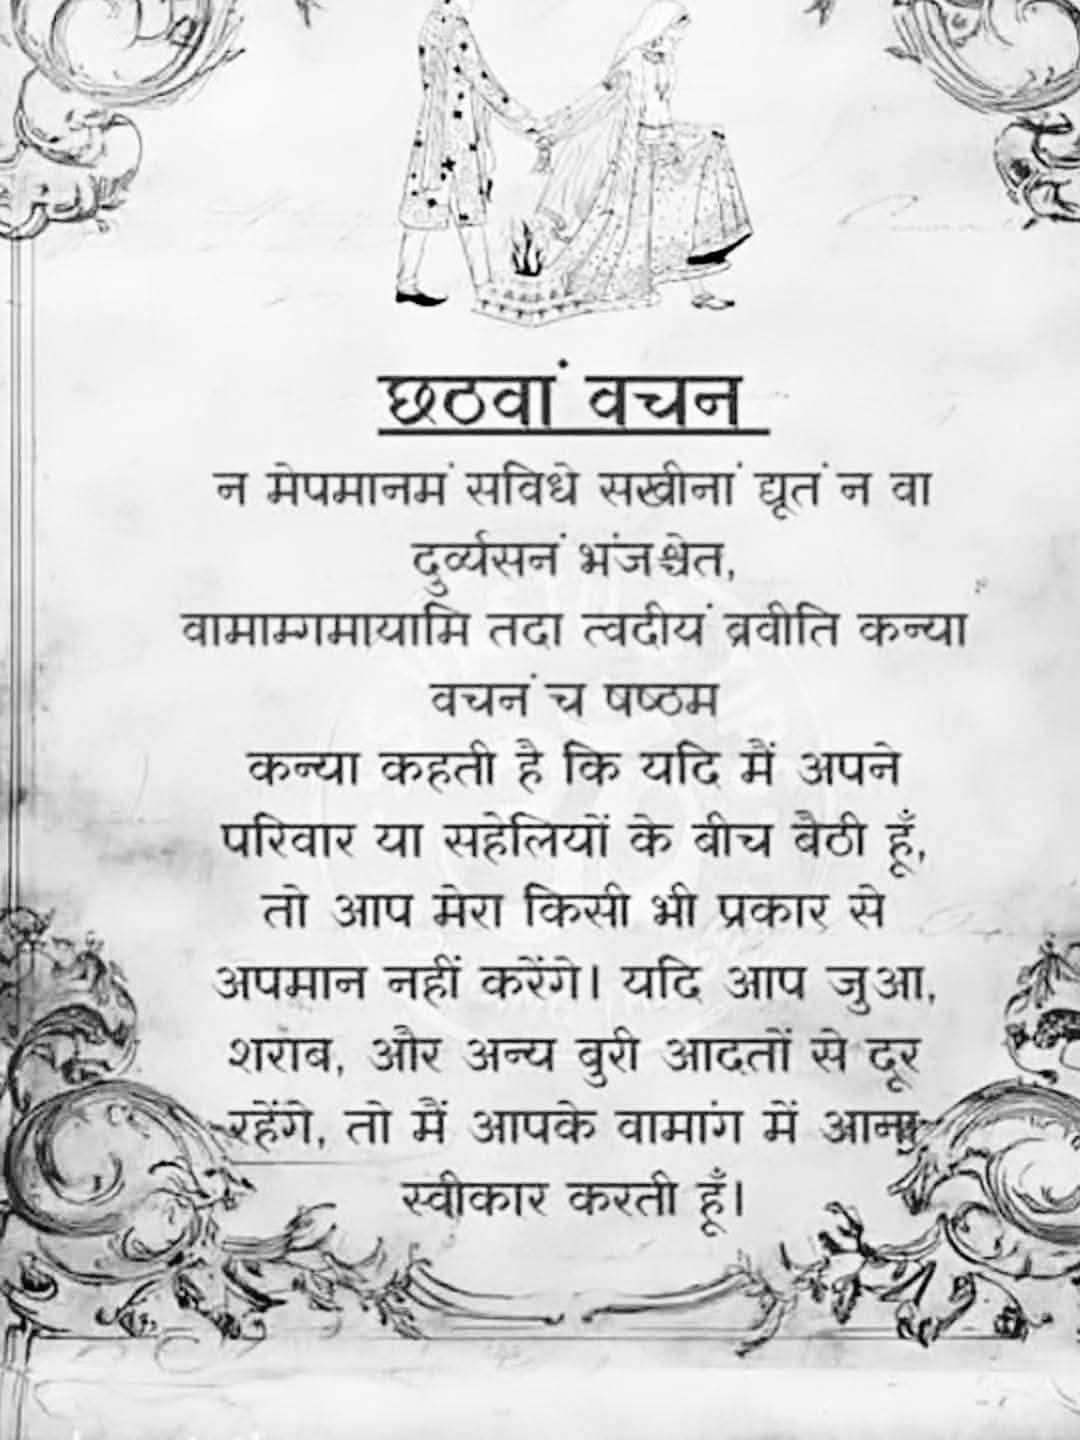 छठवां वचन
न मेपमानमं सविधे सखीनां द्यूतं न वा
दुर्व्यसनं भंजश्चेत,
वामाम्गमायामि तदा त्वदीयं ब्रवीति कन्या
वचनं च षष्ठम
कन्या कहती है कि यदि मैं अपने
परिवार या सहेलियों के बीच बैठी हूँ,
तो आप मेरा किसी भी प्रकार से
अपमान नहीं करेंगे। यदि आप जुआ,
शराब, और अन्य बुरी आदतों से दूर
रहेंगे, तो मैं आपके वामांग में आना
स्वीकार करती हूँ।